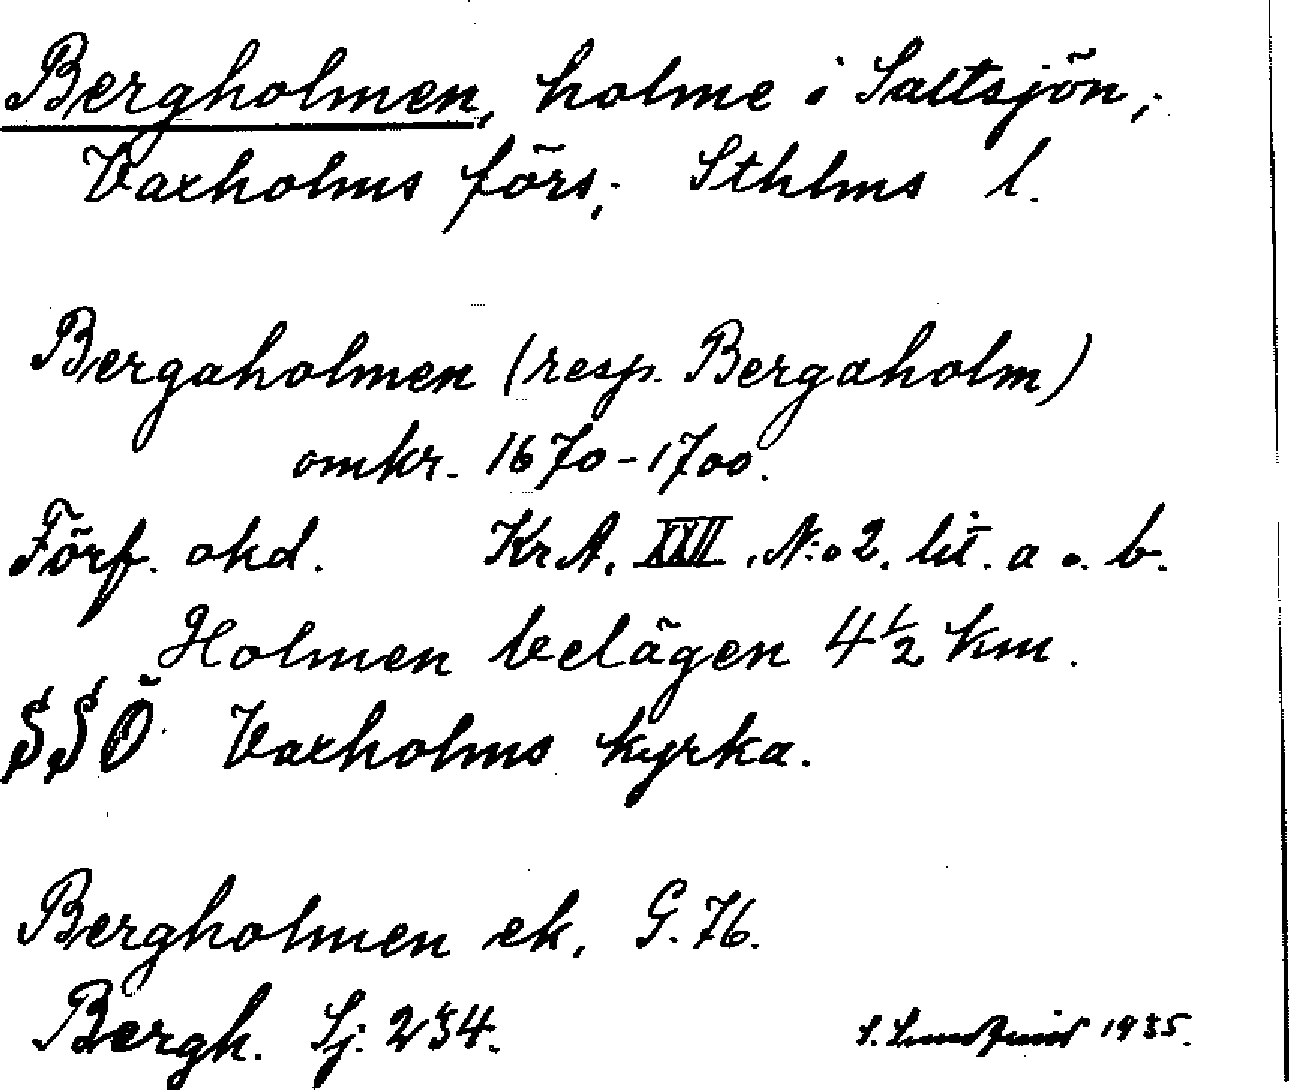 Bergholmen, holme i Saltsjön,
Vaxholms förs., Sthlms l.
Bergaholmen (resp. Bergaholm)
omkr. 1670-1700.
Förf. okd. Kr A. XXII. N:o 2. lit. a o. b.
Holmen belägen 4 1/2 km.
SSÖ Vaxholms kyrka.
Bergholmen ek. G. 76.
Bergh. Sj. 234.
1935.